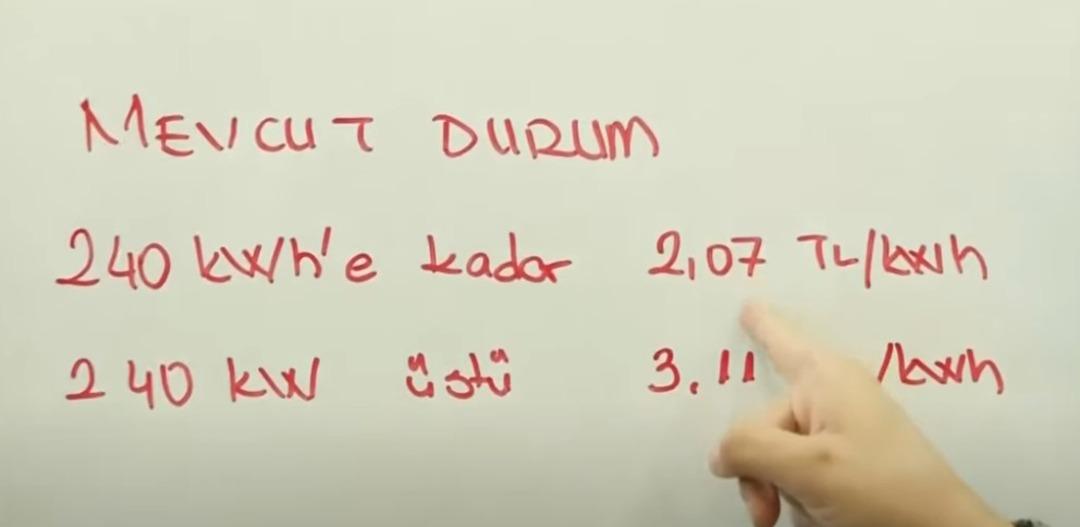 MEVCUT DURUM
240 kWh'e kadar 2,07 TL/kWh
240 kW üstü 3.11 /kWh